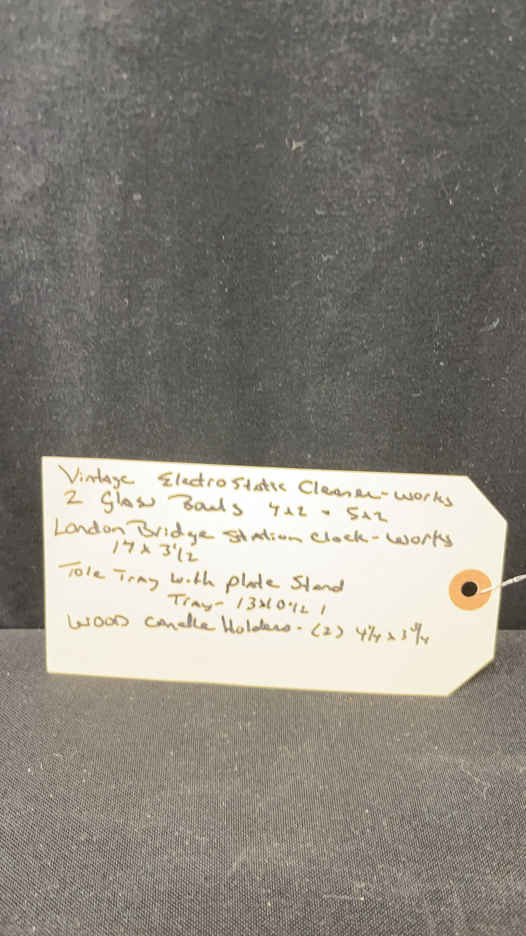 Vintage Electro Static Cleaner - works
2 Glass Bowls 4x2 - 5x2
London Bridge Station Clock - works
17 x 3 1/2
Tole Tray with plate Stand
Tray - 13x10 1/2
WOOD Candle Holders - (2) 4 1/4 x 3 3/4